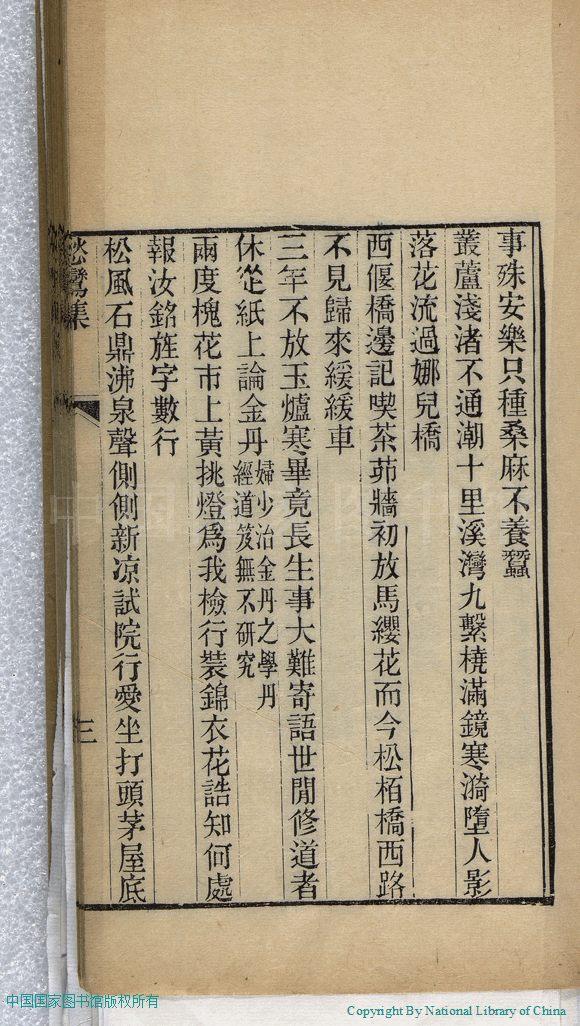 事殊安樂只種桑麻不養蠶
叢蘆淺渚不通潮十里溪灣九繫橈滿鏡寒漪墮人影
落花流過娜兒橋
西偃橋邊記喫茶茆牆初放馬纓花而今松栢橋西路
不見歸來緩緩車
三年不放玉爐寒畢竟長生事大難寄語世閒修道者
休從紙上論金丹婦少治金丹之學丹
經道笈無不研究
兩度槐花市上黃挑燈爲我檢行裝錦衣花誥知何處
報汝銘旌字數行
松風石鼎沸泉聲側側新凉試院行愛坐打頭茅屋底
愁鸞集
三
中国国家图书馆版权所有
Copyright By National Library of China